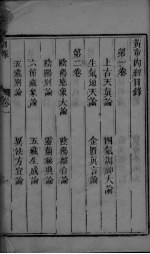 黃帝內經目錄
第一卷
上古天眞論
四氣調神大論
生氣通天論
金匱眞言論
第二卷
陰陽應象大論
陰陽離合論
陰陽別論
靈蘭秘典論
六節藏象論
五藏生成論
五藏別論
異法方宜論